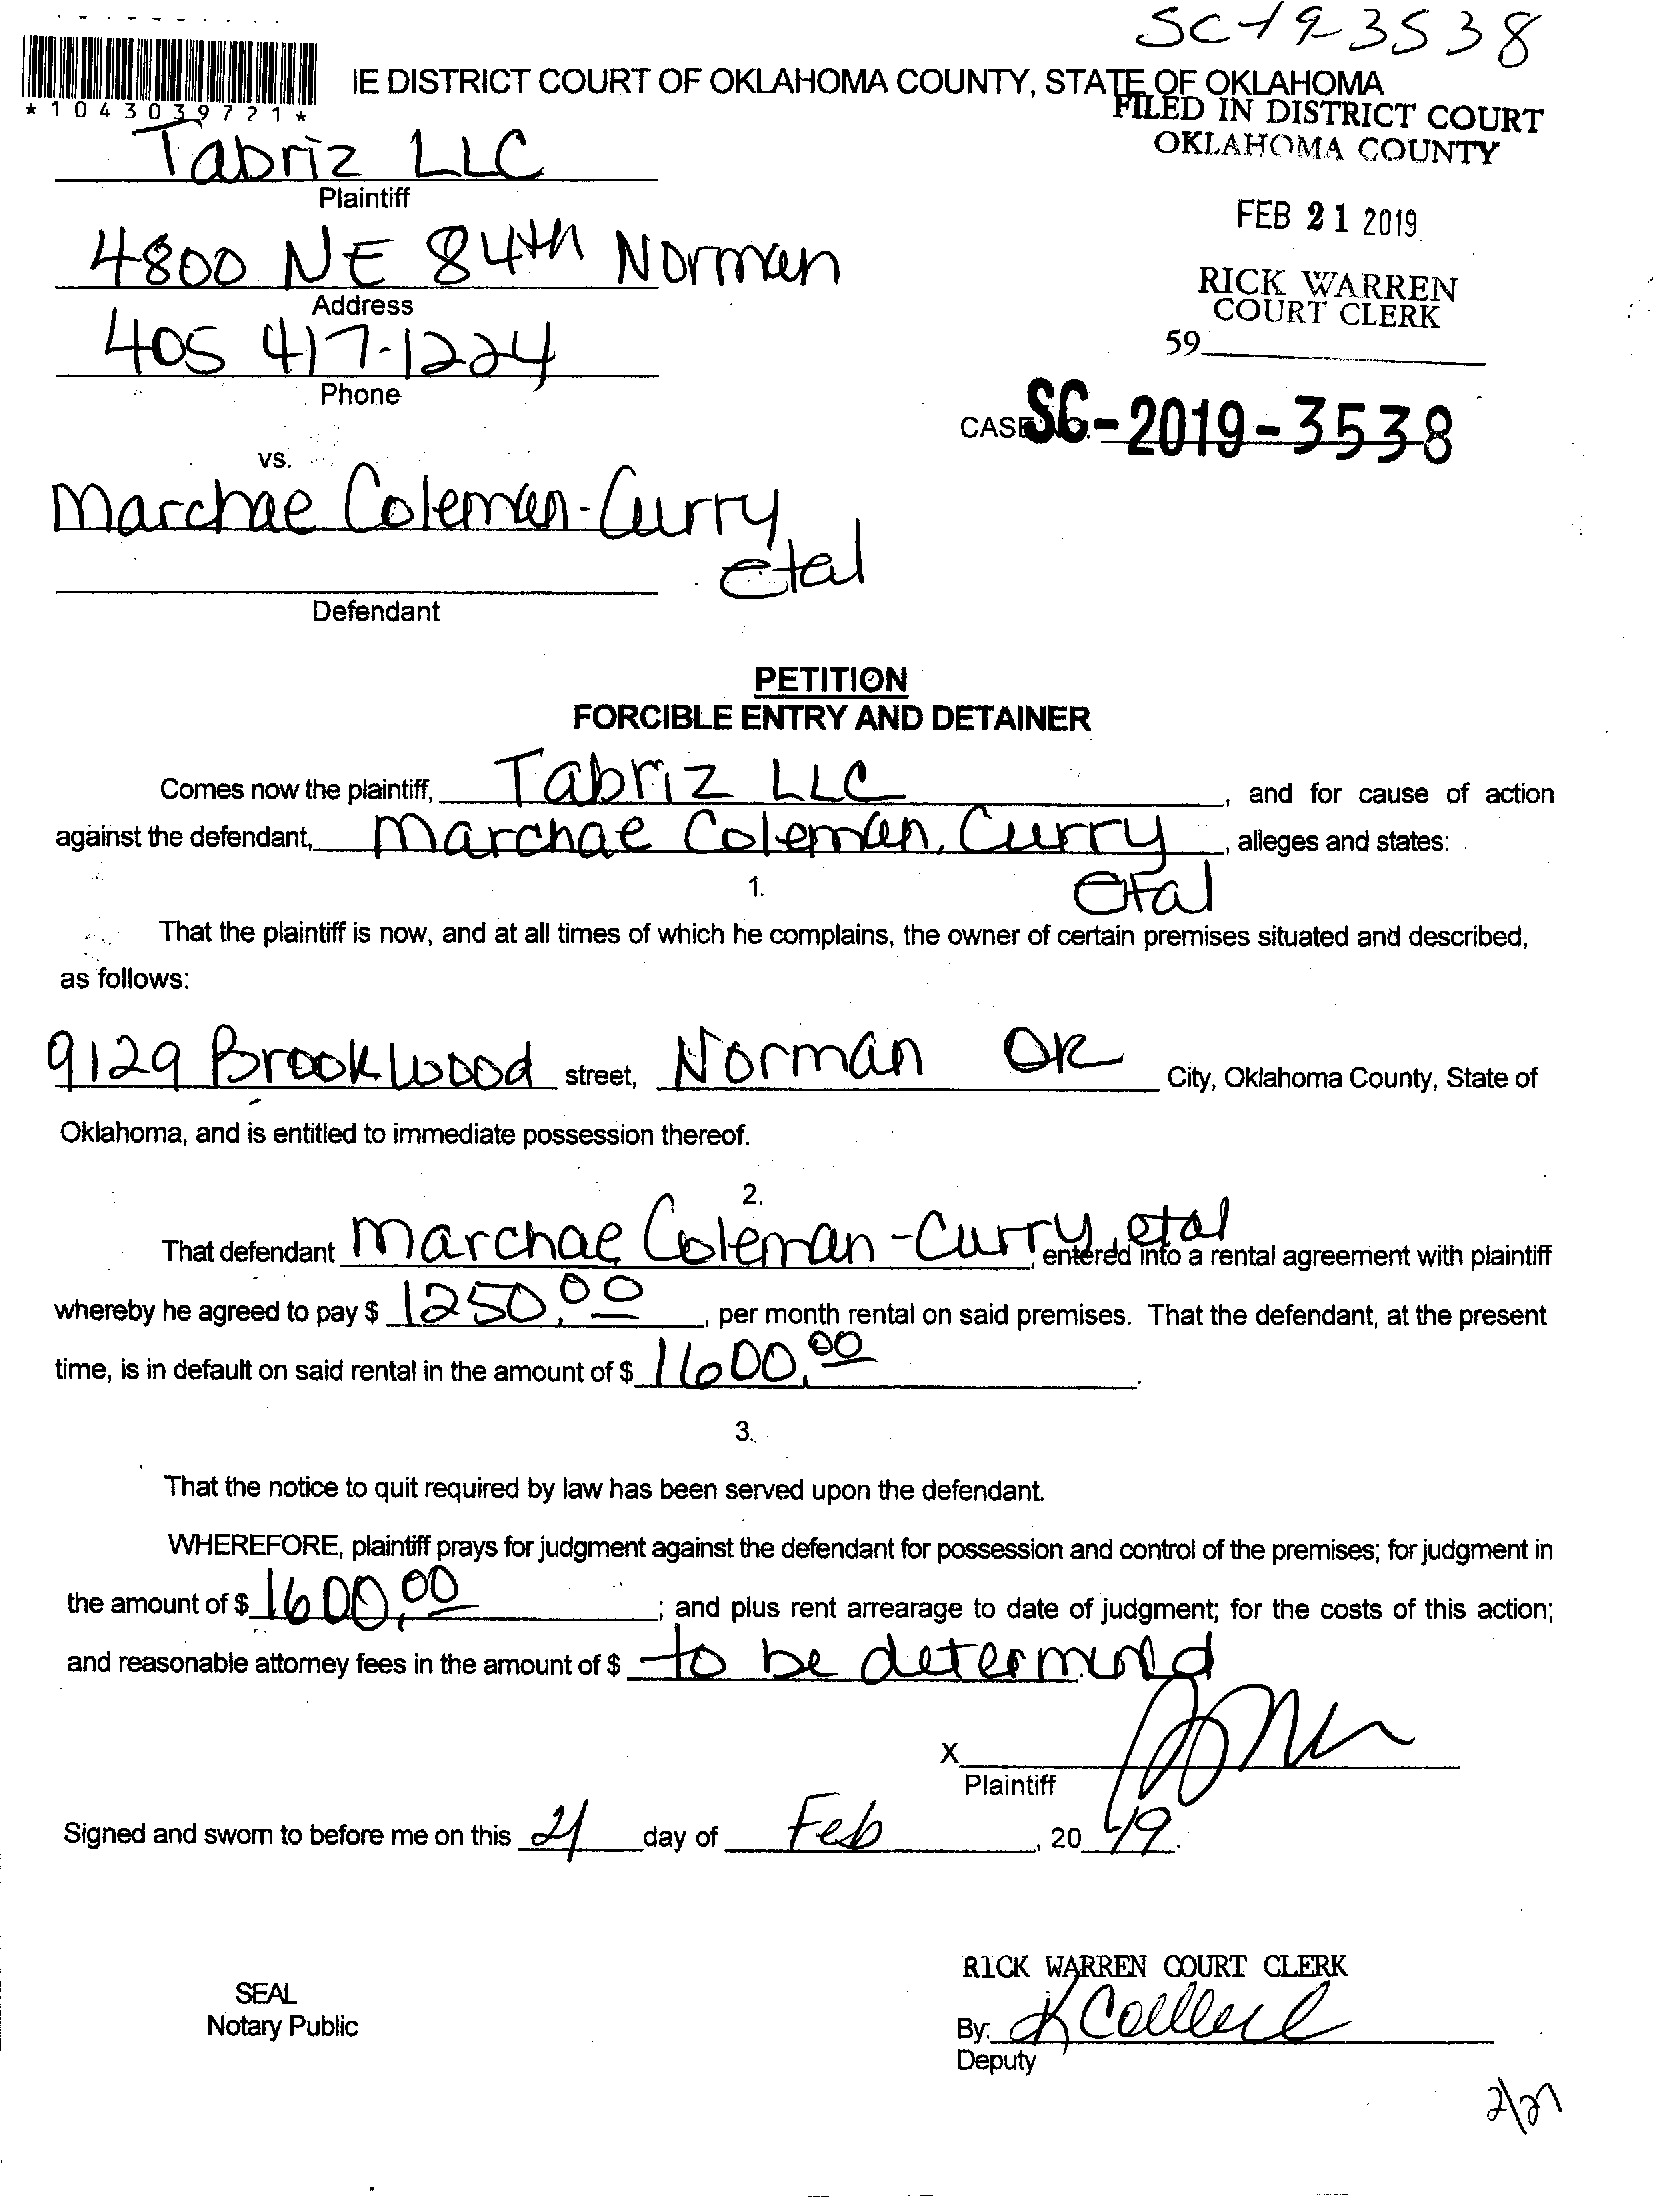 SC-19-3538
IE DISTRICT COURT OF OKLAHOMA COUNTY, STATE OF OKLAHOMA
*1043039721*
FILED IN DISTRICT COURT
OKLAHOMA COUNTY
Tabriz LLC
Plaintiff
FEB 21 2019
4800 NE 84th Norman
Address
RICK WARREN
COURT CLERK
405 417-1224
Phone
59
CASE SC-2019-3538
vs.
Marchae Coleman-Curry
etal
Defendant
PETITION
FORCIBLE ENTRY AND DETAINER
Comes now the plaintiff, Tabriz LLC, and for cause of action
against the defendant, Marchae Coleman, Curry, alleges and states:
etal
1.
That the plaintiff is now, and at all times of which he complains, the owner of certain premises situated and described,
as follows:
9129 Brookwood street, Norman OK City, Oklahoma County, State of
Oklahoma, and is entitled to immediate possession thereof.
2.
That defendant Marchae Coleman-Curry, etal, entered into a rental agreement with plaintiff
whereby he agreed to pay $ 1250.00, per month rental on said premises. That the defendant, at the present
time, is in default on said rental in the amount of $ 1600.00.
3.
That the notice to quit required by law has been served upon the defendant.
WHEREFORE, plaintiff prays for judgment against the defendant for possession and control of the premises; for judgment in
the amount of $ 1600.00; and plus rent arrearage to date of judgment; for the costs of this action;
and reasonable attorney fees in the amount of $ to be determind
X
Plaintiff
Signed and sworn to before me on this 21 day of Feb, 20 19.
RICK WARREN COURT CLERK
SEAL
Notary Public
By:
Deputy
2/27